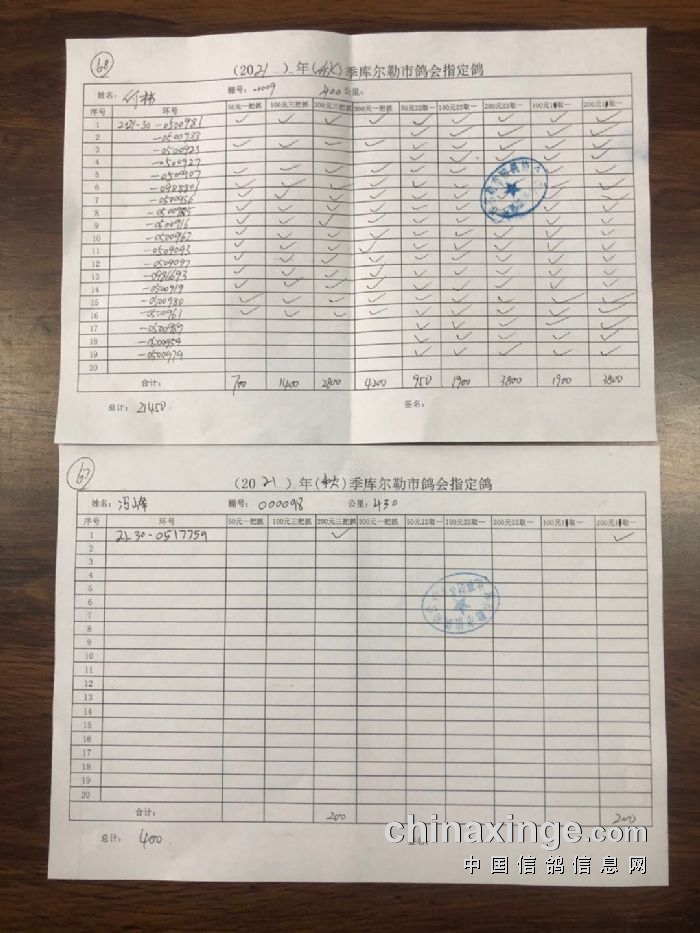 68
(2021)年(秋)季库尔勒市鸽会指定鸽
姓名: 棚号: 公里: 400
序号 环号 50元一把抓 100元三把抓 200元三把抓 300元一把抓 50元22取一 100元22取一 200元22取一 100元1取一 200元1取一
1 2021-30-0500981 ✓ ✓ ✓ ✓ ✓ ✓ ✓ ✓ ✓
2 -0500933 ✓ ✓ ✓ ✓ ✓
3 -0500923 ✓ ✓ ✓ ✓ ✓ ✓ ✓ ✓ ✓
4 -0500927 ✓ ✓ ✓ ✓ ✓
5 -0500907 ✓ ✓ ✓ ✓ ✓ ✓ ✓ ✓ ✓
6 ✓ ✓ ✓ ✓ ✓ ✓ ✓ ✓ ✓
7 -0500956 ✓ ✓ ✓ ✓ ✓ ✓ ✓ ✓ ✓
8 -0500985 ✓ ✓ ✓ ✓ ✓ ✓ ✓ ✓ ✓
9 -0500916 ✓ ✓ ✓ ✓ ✓ ✓ ✓ ✓ ✓
10 -0500967 ✓ ✓ ✓ ✓ ✓ ✓ ✓ ✓ ✓
11 -0509093 ✓ ✓ ✓ ✓ ✓ ✓ ✓ ✓ ✓
12 -0509097 ✓ ✓ ✓ ✓ ✓ ✓ ✓ ✓ ✓
13 -0981693 ✓ ✓ ✓ ✓ ✓ ✓ ✓ ✓ ✓
14 -0500919 ✓ ✓ ✓ ✓ ✓ ✓ ✓ ✓ ✓
15 -0500980 ✓ ✓ ✓ ✓ ✓ ✓ ✓ ✓ ✓
16 -0500961 ✓ ✓ ✓ ✓ ✓ ✓ ✓ ✓ ✓
17 ✓ ✓ ✓ ✓ ✓
18 -0500959 ✓ ✓ ✓ ✓ ✓
19 -0500979 ✓ ✓ ✓ ✓ ✓
20
合计: 700 1400 2800 4200 950 1900 3800 1900 3800
总计: 21450. 签名:
67
(2021)年(秋)季库尔勒市鸽会指定鸽
姓名: 冯峰 棚号: 000098 公里: 430
序号 环号 50元一把抓 100元三把抓 200元三把抓 300元一把抓 50元22取一 100元22取一 200元22取一 100元1取一 200元1取一
1 21-30-0517759 ✓ ✓
2
3
4
5
6
7
8
9
10
11
12
13
14
15
16
17
18
19
20
合计: 200 200
总计: 400.
chinaxinge.com
中国信鸽信息网